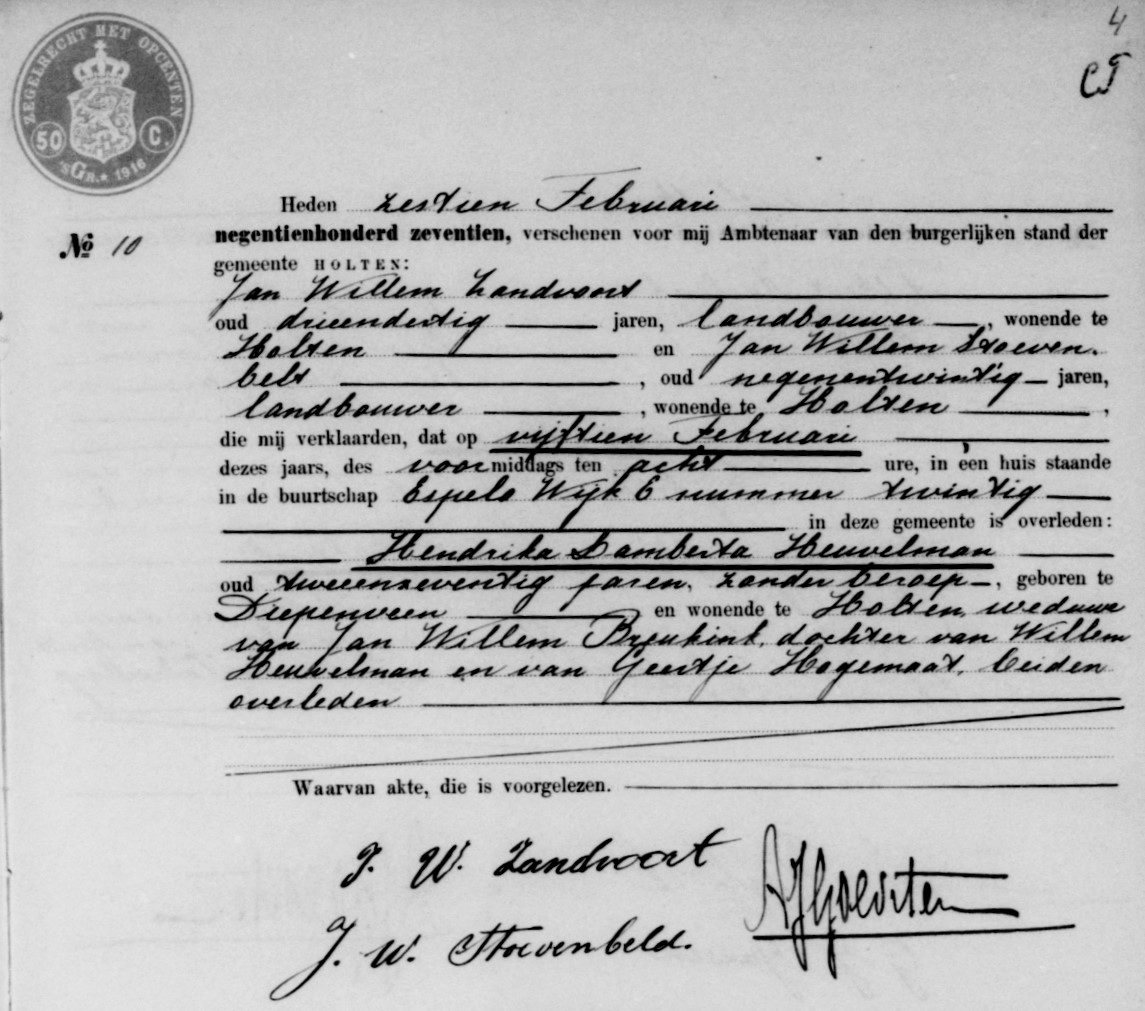 4
ZEGELRECHT MET OPCENTEN
50 C.
'sGR.* 1916
Heden zestien Februari
No 10
negentienhonderd zeventien, verschenen voor mij Ambtenaar van den burgerlijken stand der
gemeente HOLTEN:
Jan Willem Zandvoort
oud drieendertig jaren, landbouwer, wonende te
Holten en Jan Willem Stoeven-
belt, oud negenentwintig jaren,
landbouwer, wonende te Holten,
die mij verklaarden, dat op vijftien Februari
dezes jaars, des voormiddags ten acht ure, in één huis staande
in de buurtschap Espelo Wijk E nummer twintig
in deze gemeente is overleden:
Hendrika Lamberta Heuvelman
oud tweeenzeventig jaren, zonder beroep, geboren te
Diepenveen en wonende te Holten, weduwe
van Jan Willem Breukink, dochter van Willem
Heuvelman en van Geertje Hogemaat, beiden
overleden
Waarvan akte, die is voorgelezen.
J. W. Zandvoort
J. W. Stoevenbeld.